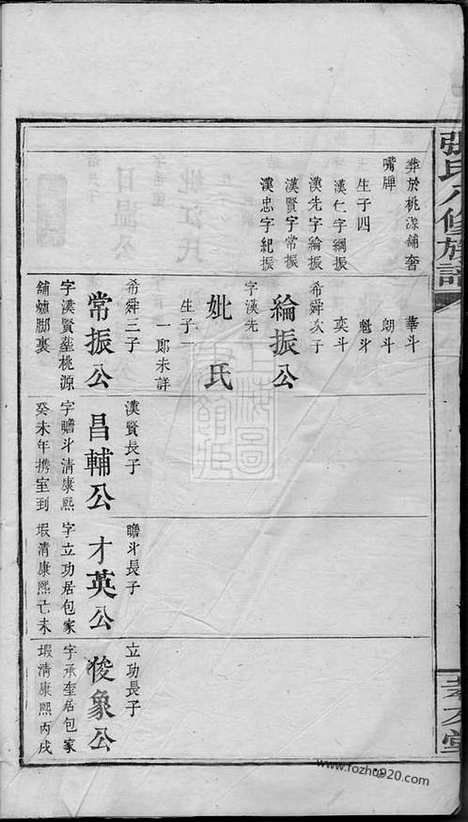 張氏八修族譜
葬於桃源舖奢
嘴脾
生子四
漢仁字綱振
漢先字綸振
漢賢字常振
漢忠字紀振
華斗
朗斗
魁斗
奕斗
希舜次子
綸振公
字漢先
妣 氏
生子一
一郎未詳
希舜三子
常振公
字漢賢葬桃源
舖爐脚裏
漢賢長子
昌輔公
字瞻斗清康熙
癸未年携室到
瞻斗長子
才英公
字立功居包家
塅清康熙己未
立功長子
俊象公
字承奎居包家
塅清康熙丙戌
孝友堂
www.fozhu920.com